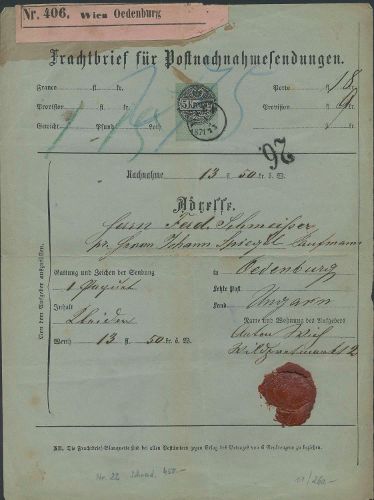 Nr. 406. Wien Oedenburg
Frachtbrief für Postnachnahmesendungen.
Franco fl. kr. Porto fl. 18
Provision fl. kr. Provision fl. 9
Gewicht Pfund Loth kr.
5 KR
1871
26
Nachnahme 13 fl. 50 kr. ö. W.
Adresse.
Herrn Ferd. Schmeisser
pr. Herrn Johann Spiegel Kaufmann
Gattung und Zeichen der Sendung in Oedenburg
1 Paquet Letzte Post
Inhalt Land Ungarn
Kleider Name und Wohnung des Aufgebers
Werth 13 fl. 50 kr. ö. W. Anton
Wildpretmarkt 2
Vom dem Aufgeber auszufüllen.
NB. Die Frachtbrief-Blanquette sind bei allen Postämtern gegen Erlag des Betrages von 6 Neukreuzern zu beziehen.
Nr. 22 450.- 260.-